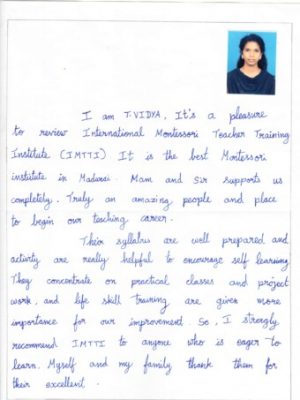 I am T.VIDYA, It's a pleasure
to review International Montessori Teacher Training
Institute (IMTTI) It is the best Montessori
institute in Madurai. Mam and Sir supports us
completely. Truly an amazing people and place
to begin our teaching career.
Their syllabus are well prepared and
activity are really helpful to encourage self learning
They concentrate on practical classes and project
work, and life skill training are given more
importance for our improvement. So, I strongly
recommend IMTTI to anyone who is eager to
learn. Myself and my family thank them for
their excellent.